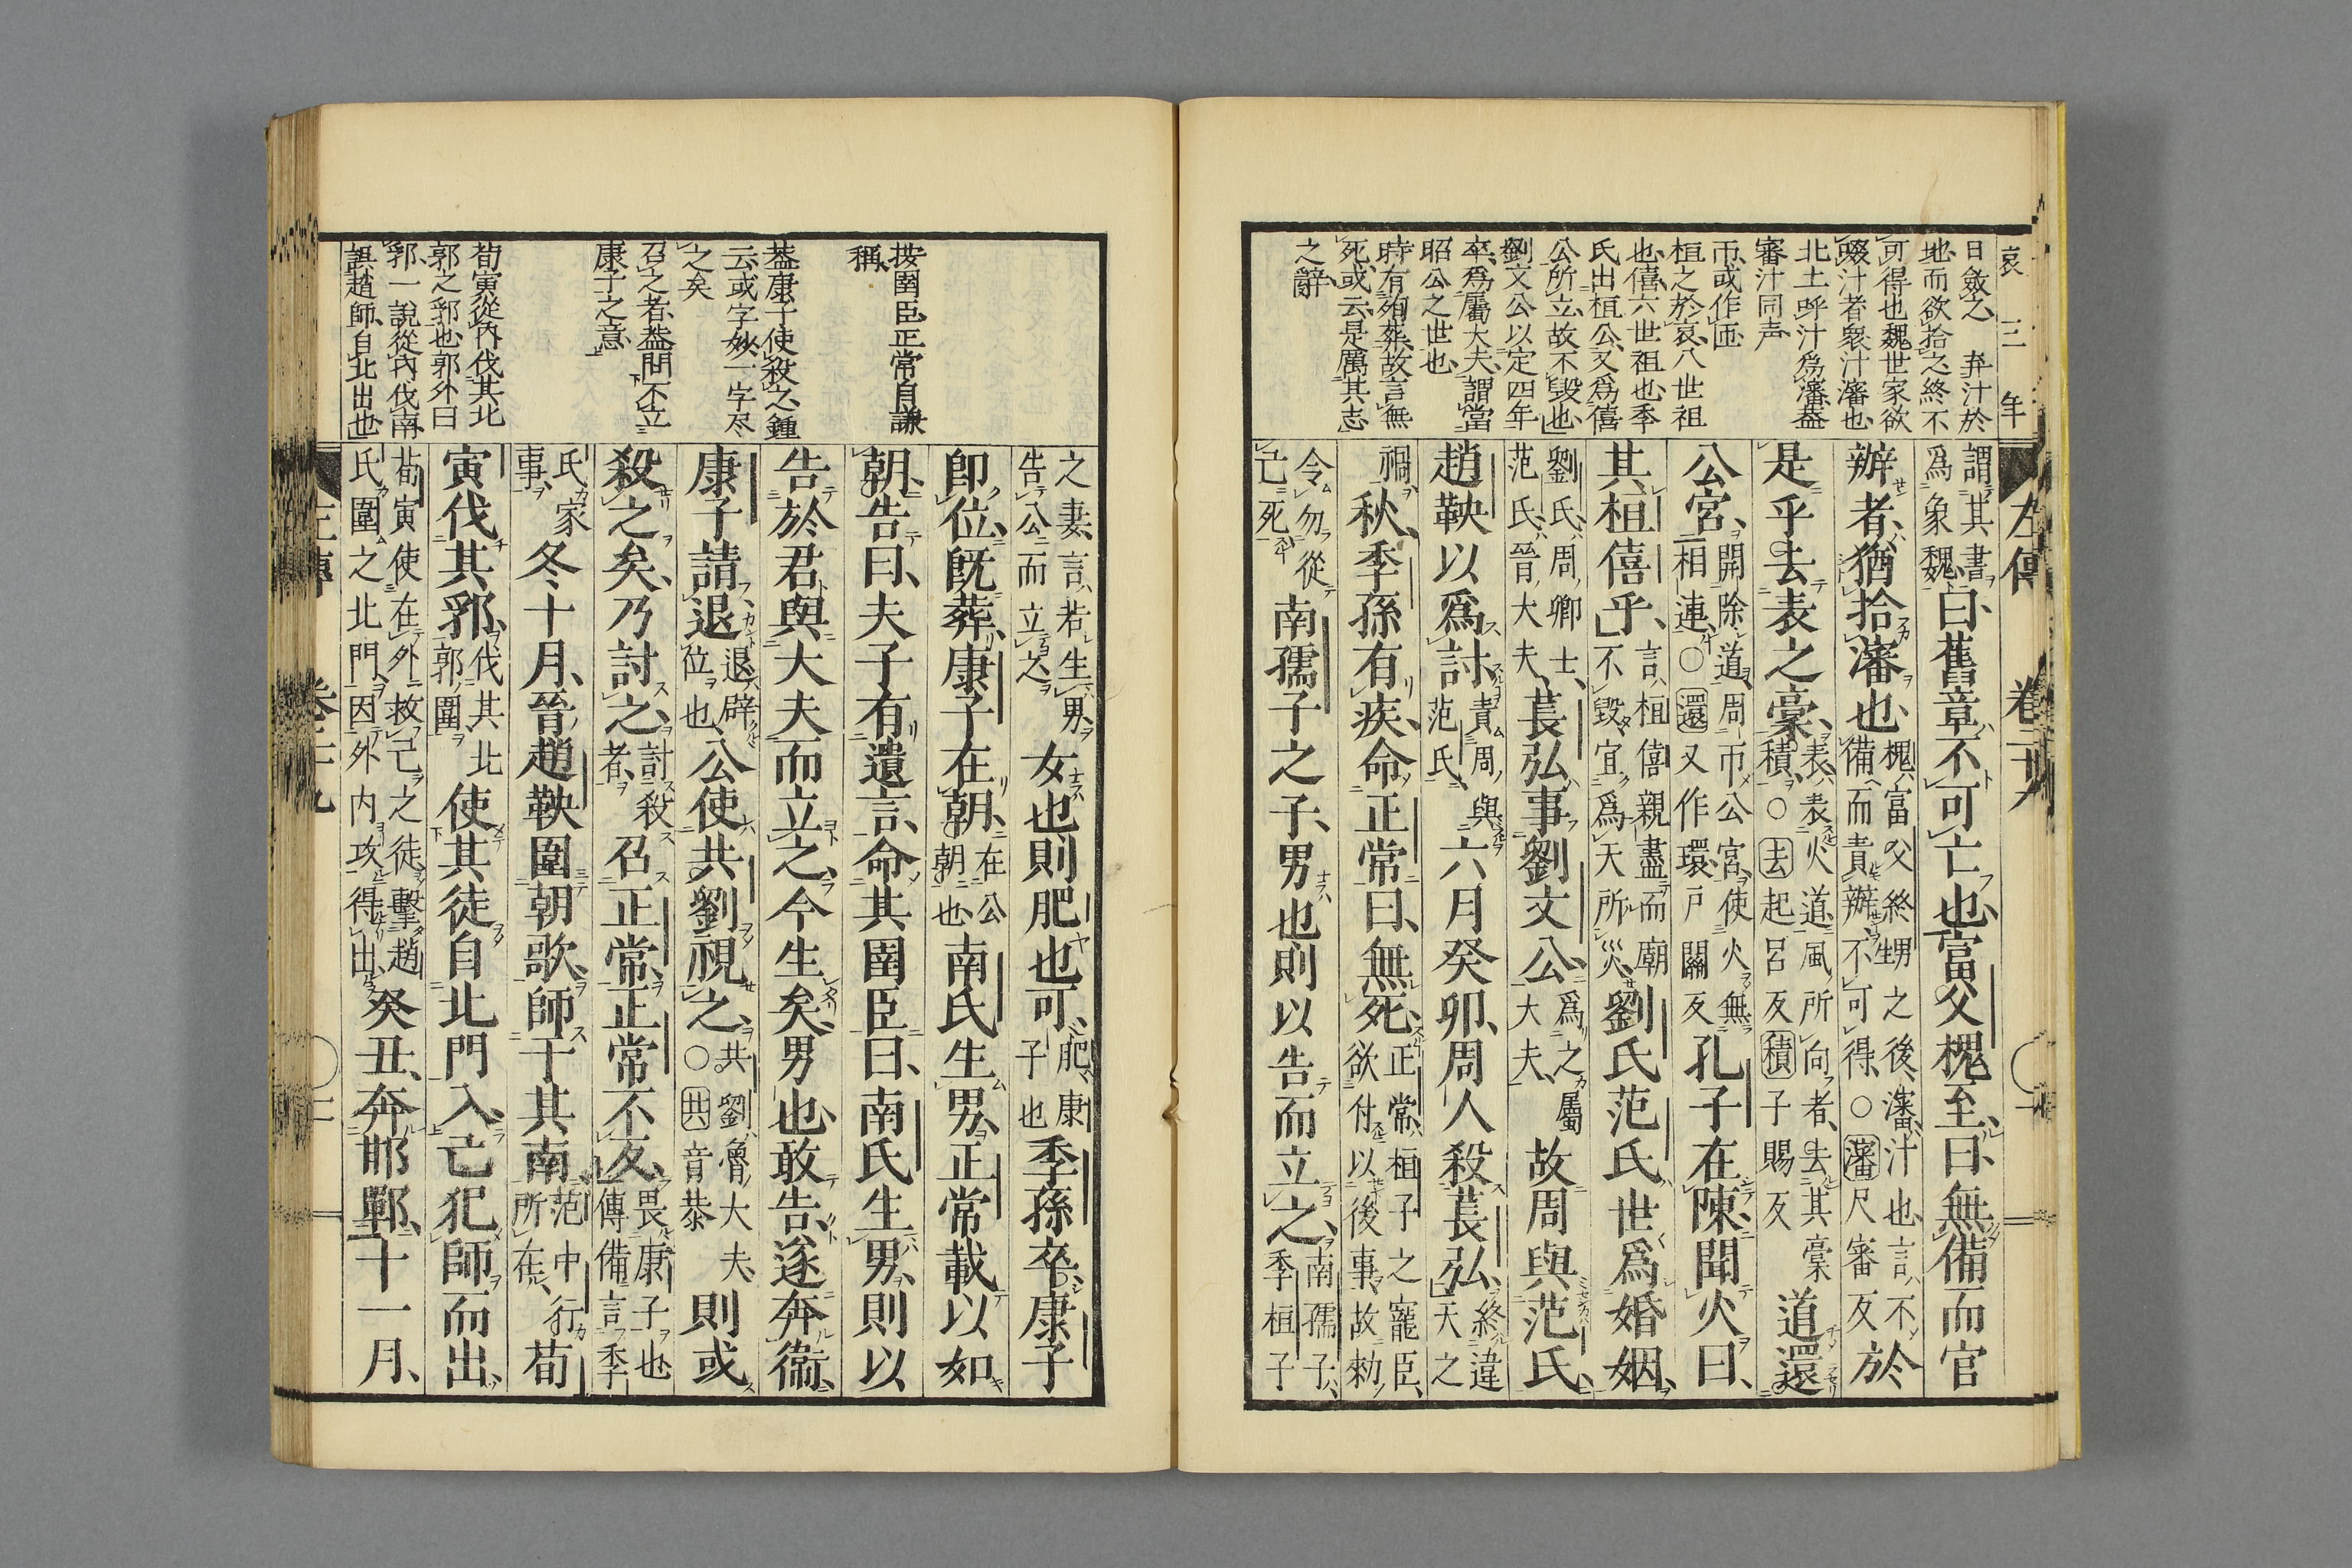 哀三年
日斂之　弃汁於
地而欲拾之終不
可得也魏世家欲
啜汁者衆汁瀋也
北土呼汁爲瀋葢
審汁同声
帀或作匝
桓之於哀八世祖
也僖六世祖也季
氏出桓公又爲僖
公所立故不毀也
劉文公以定四年
卒爲屬大夫謂當
昭公之世也
時有殉葬故言無
死或云是厲其志
之辭
左傳　卷二十九
謂其書爲象魏曰舊章不可亡也富父槐至曰無備而官
辦者猶拾瀋也槐富父終甥之後瀋汁也言不備而責辦不可得○瀋尺審反於
是乎去表之槀表表火道風所向者去其槀積○去起呂反積子賜反道還
公宮開除道周帀公宮使火無相連○還又作環戸關反孔子在陳聞火曰
其桓僖乎言桓僖親盡而廟不毀宜爲天所災劉氏范氏世爲婚姻
劉氏周卿士范氏晉大夫萇弘事劉文公爲之屬大夫故周與范氏
趙鞅以爲討責周與范氏六月癸卯周人殺萇弘終違天之
禍秋季孫有疾命正常曰無死正常桓子之寵臣欲付以後事故勑
令勿從己死南孺子之子男也則以告而立之南孺子季桓子
按圉臣正常自謙
稱
葢康子使殺之鍾
云或字妙一字尽
之矣
召之者葢問不立
康子之意
荀寅從內伐其北
郭之郛也郭外曰
郛一說從內伐南
誤趙師自北出也
之妻言若生男告公而立之女也則肥也可肥康子也季孫卒康子
卽位旣葬康子在朝在公朝也南氏生男正常載以如
朝告曰夫子有遺言命其圉臣曰南氏生男則以
告於君與大夫而立之今生矣男也敢告遂奔衞
康子請退退辟位也公使共劉視之共劉魯大夫○共音恭則或
殺之矣乃討之討殺者召正常正常不反畏康子也傳備言季
氏家事冬十月晉趙鞅圍朝歌師于其南范中行所在荀
寅伐其郛伐其北郭圍使其徒自北門入己犯師而出
荀寅使在外救己之徒擊趙氏圍之北門因外內攻得出癸丑奔邯鄲十一月